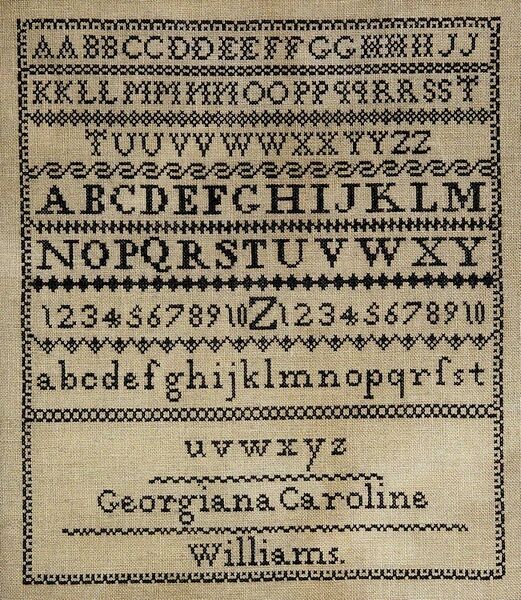 AABBCCDDEEFFGGHHIIJJ
KKLLMMNNOOPPqqRRSST
TUUVVWWXXYYZZ
ABCDEFGHIJKLM
NOPQRSTUVWXY
12345678910Z12345678910
abcdefghijklmnopqrſst
uvwxyz
Georgiana Caroline
Williams.